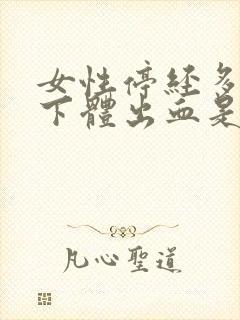 女性停经多
下體出血是
凡心聖道